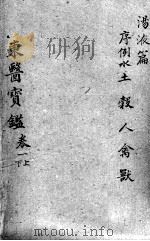 湯液篇
序例水土 穀 人 禽 獸
東醫寶鑑 卷一上下